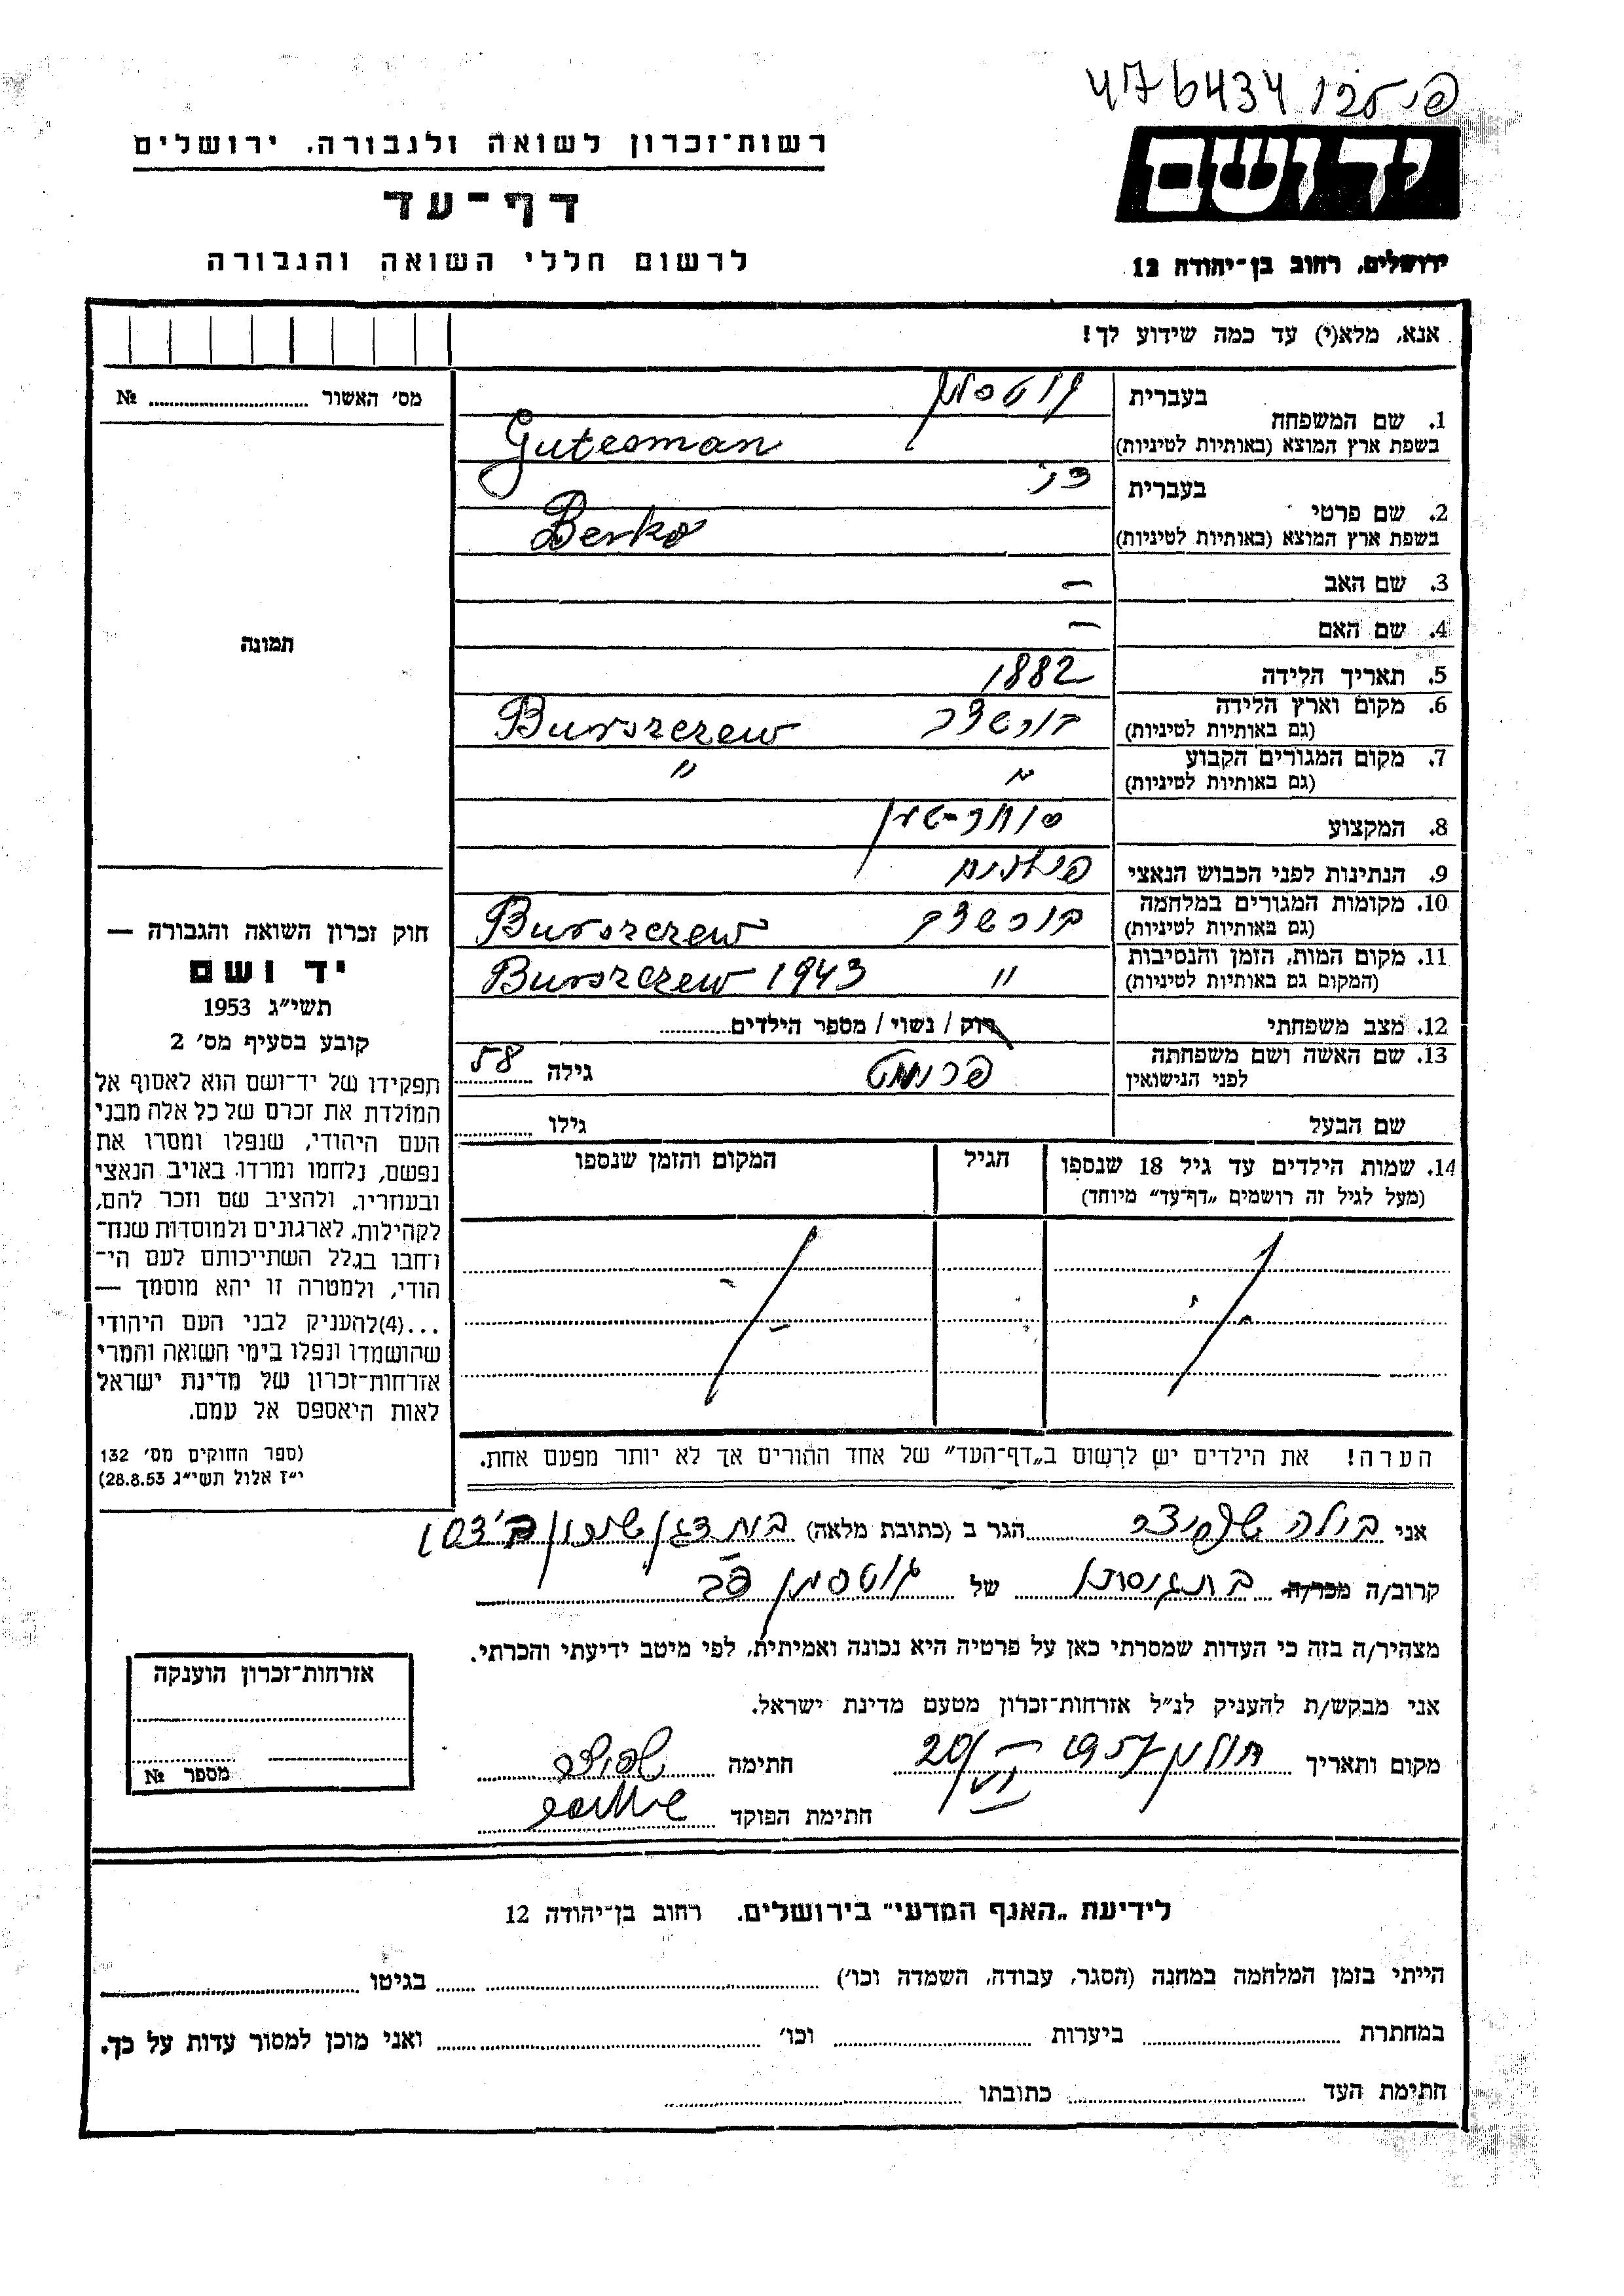 476434
רשות־זכרון לשואה ולגבורה, ירושלים
ידושם
דף־עד
לרשום חללי השואה והגבורה
ירושלים, רחוב בן־יהודה 12
אנא, מלא(י) עד כמה שידוע לך!
מס׳ האשור № ........
1. שם המשפחה
בעברית גוטסמן
בשפת ארץ המוצא (באותיות לטיניות) Gutesman
2. שם פרטי
בעברית
בשפת ארץ המוצא (באותיות לטיניות) Berko
3. שם האב –
4. שם האם –
5. תאריך הלידה 1882
6. מקום וארץ הלידה
(גם באותיות לטיניות) בורשצב Burszczew
7. מקום המגורים הקבוע
(גם באותיות לטיניות) " "
8. המקצוע סוחר
9. הנתינות לפני הכבוש הנאצי פולנית
10. מקומות המגורים במלחמה
(גם באותיות לטיניות) בורשצב Burszczew
11. מקום המות, הזמן והנסיבות
(המקום גם באותיות לטיניות) " Burszczew 1943
12. מצב משפחתי רוק / נשוי / מספר הילדים........
13. שם האשה ושם משפחתה
לפני הנישואין פרומט גילה 58
שם הבעל גילו ........
14. שמות הילדים עד גיל 18 שנספו
(מעל לגיל זה רושמים „דף־עד״ מיוחד)
הגיל
המקום והזמן שנספו
תמונה
חוק זכרון השואה והגבורה —
יד ושם
תשי״ג 1953
קובע בסעיף מס׳ 2
תפקידו של יד־ושם הוא לאסוף אל
המולדת את זכרם של כל אלה מבני
העם היהודי, שנפלו ומסרו את
נפשם, נלחמו ומרדו באויב הנאצי
ובעוזריו, ולהציב שם וזכר להם,
לקהילות, לארגונים ולמוסדות שנח־
רחבו בגלל השתייכותם לעם הי־
הודי, ולמטרה זו יהא מוסמך —
...(4)להעניק לבני העם היהודי
שהושמדו ונפלו בימי השואה והמרי
אזרחות־זכרון של מדינת ישראל
לאות היאספם אל עמם.
(ספר החוקים מס׳ 132
י״ז אלול תשי״ג 28.8.53)
הערה! את הילדים יש לרשום ב„דף־העד״ של אחד ההורים אך לא יותר מפעם אחת.
אני בולה הגר ב (כתובת מלאה) בית דגן שיכון
קרוב/ה מכר/ה של גוטסמן
מצהיר/ה בזה כי העדות שמסרתי כאן על פרטיה היא נכונה ואמיתית, לפי מיטב ידיעתי והכרתי.
אני מבקש/ת להעניק לנ״ל אזרחות־זכרון מטעם מדינת ישראל.
מקום ותאריך חולון 1957 20/VI חתימה
חתימת הפוקד
אזרחות־זכרון הוענקה
מספר №
לידיעת „האגף המדעי״ בירושלים, רחוב בן־יהודה 12
הייתי בזמן המלחמה במחנה (הסגר, עבודה, השמדה וכו׳) ........ בגיטו ........
במחתרת ........ ביערות ........ וכו׳ ........ ואני מוכן למסור עדות על כך.
חתימת העד ........ כתובתו ........